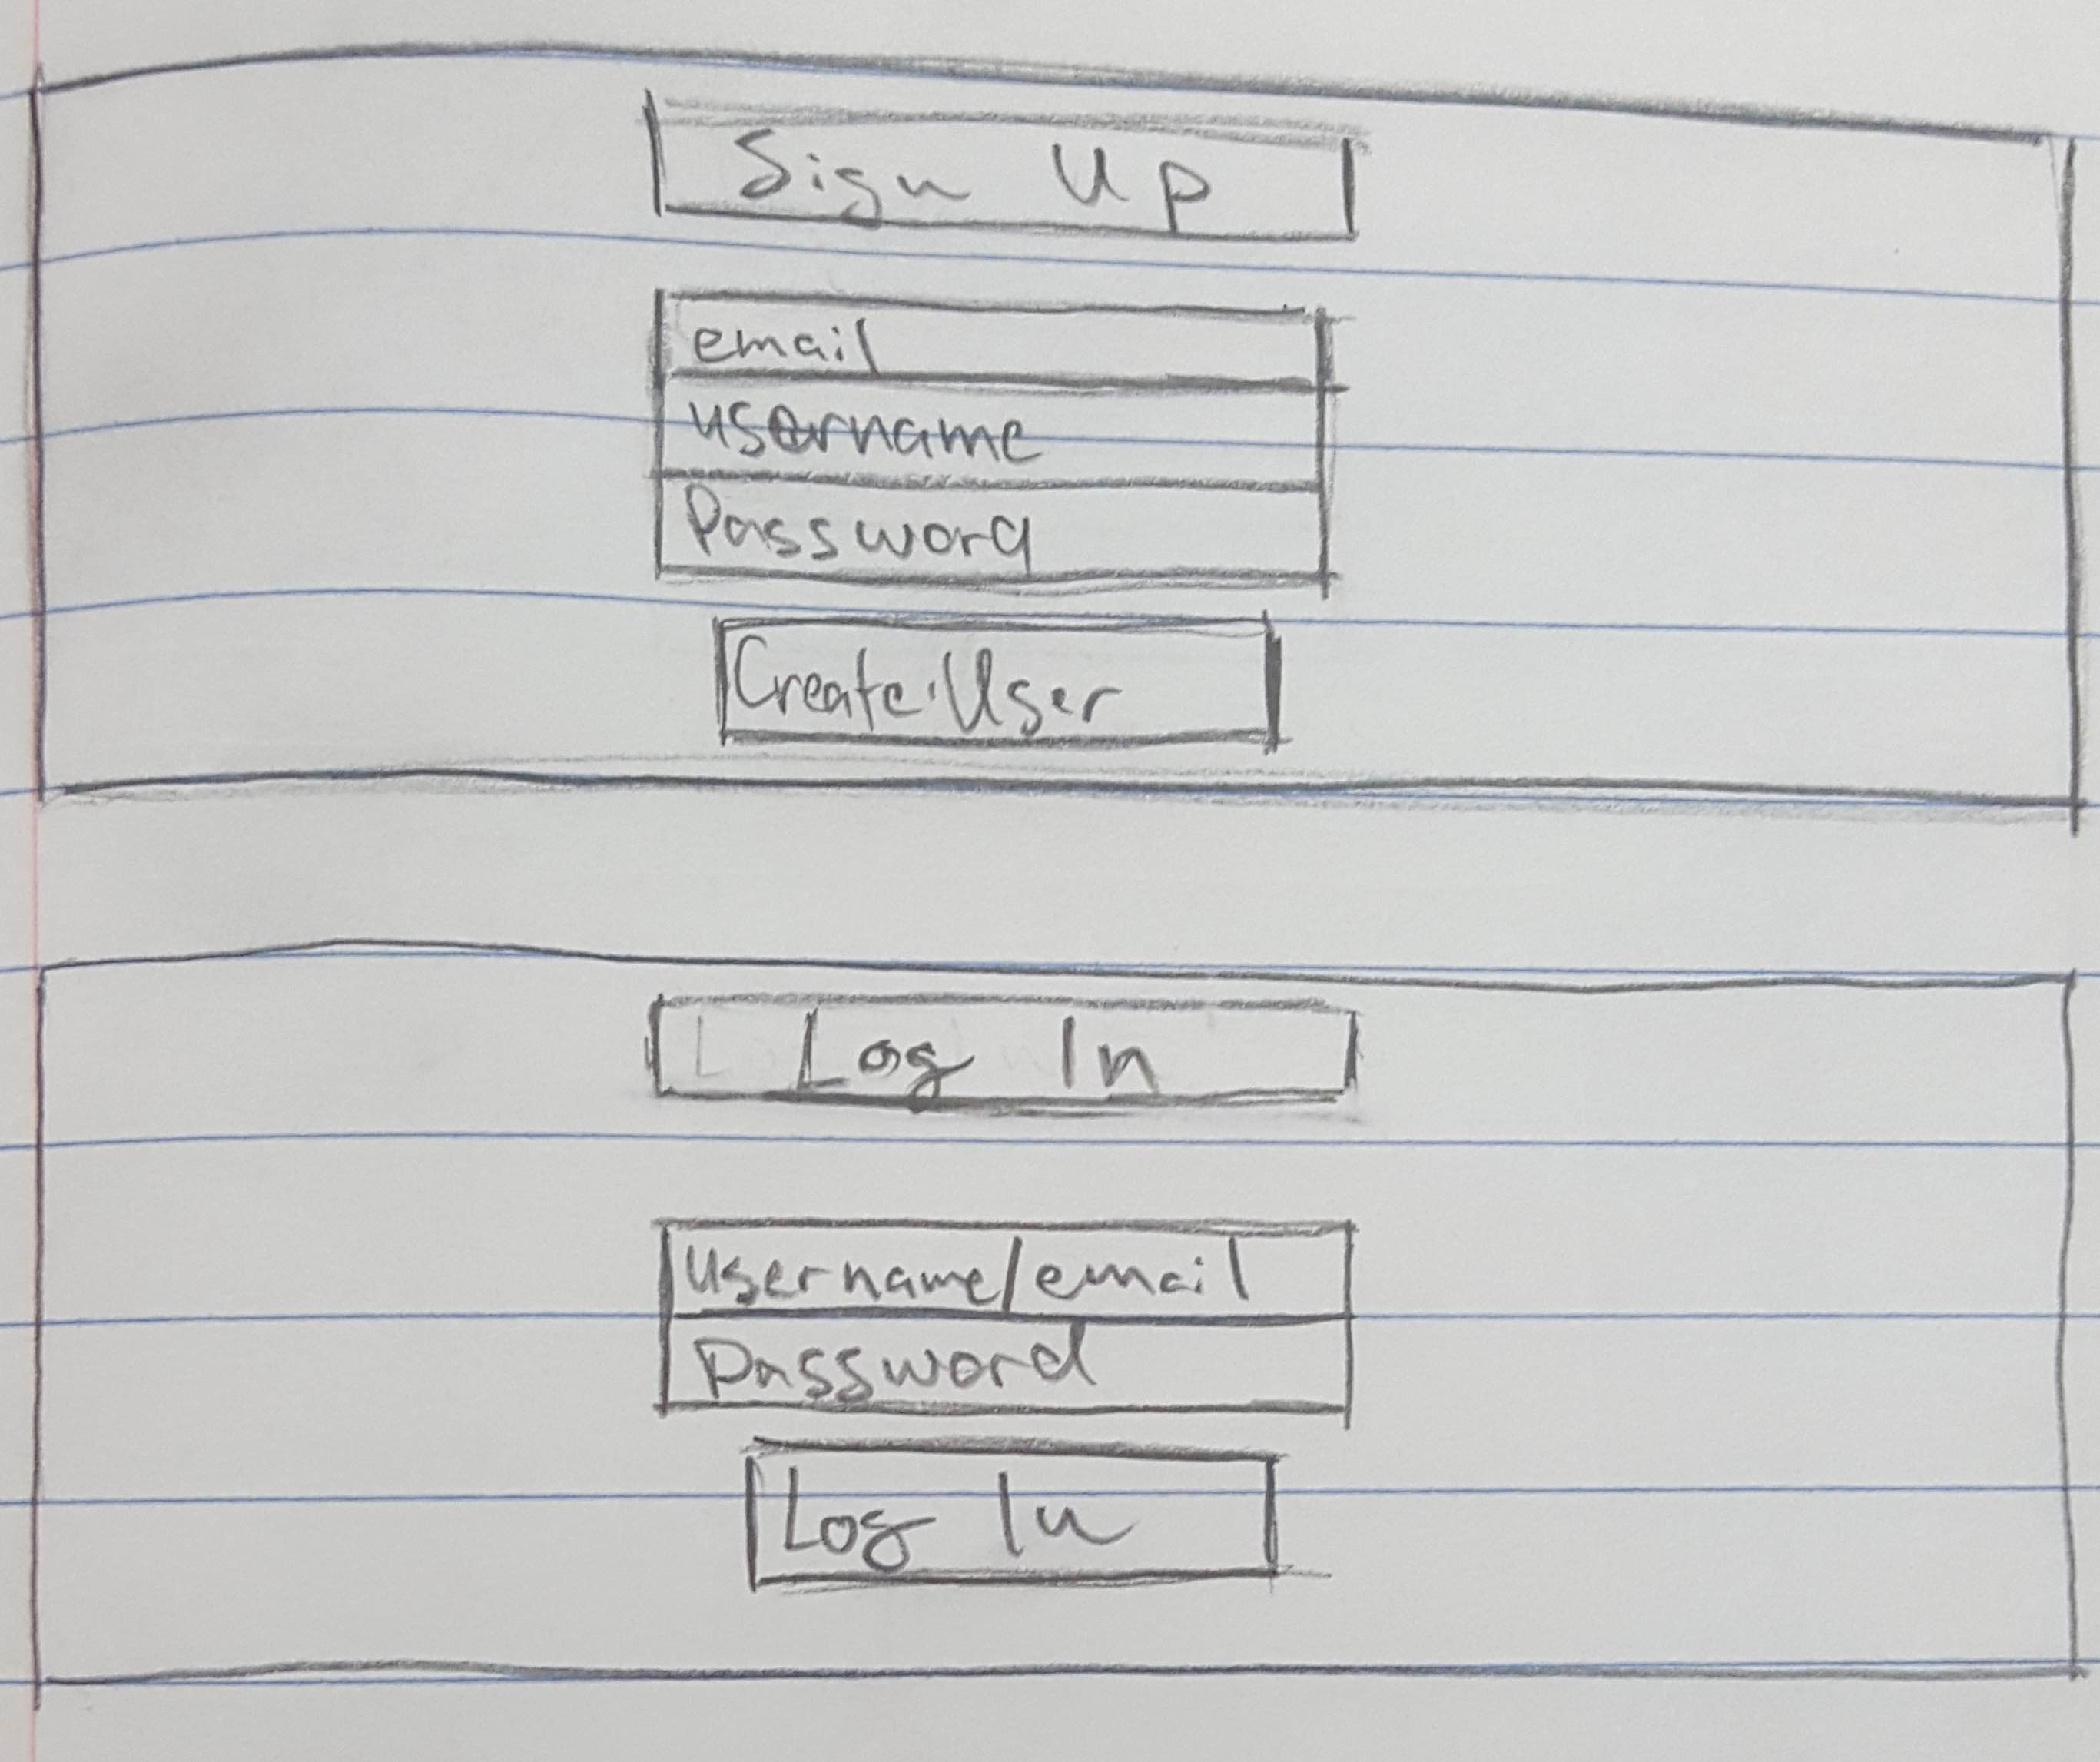 Sign Up
email
username
Password
Create User
Log In
Username/email
Password
Log In